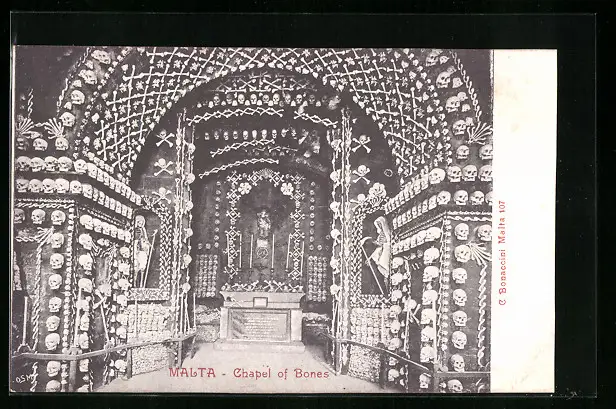 MALTA - Chapel of Bones
C Bonaccini Malta 107